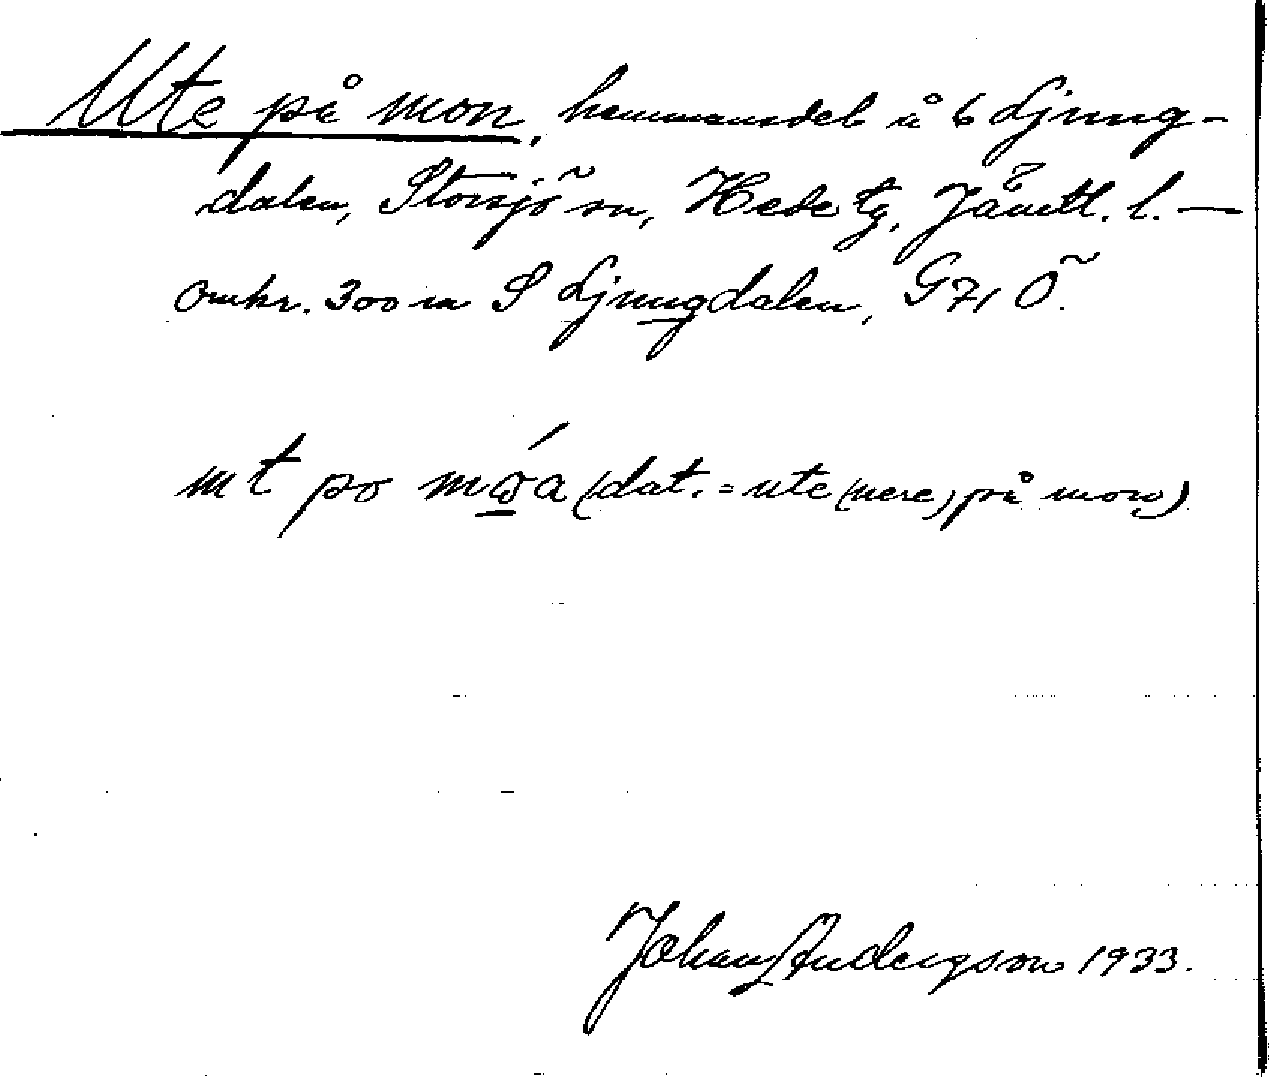 Ute på mon, hemmansdel å 6 Ljung-
dalen, Storsjö sn, Hede tg, Jämtl. l. —
omkr. 300 m S Ljungdalen, G 71 Ö.
ut po móa (dat. = ute (nere) på mon)
Johan Andersson 1933.